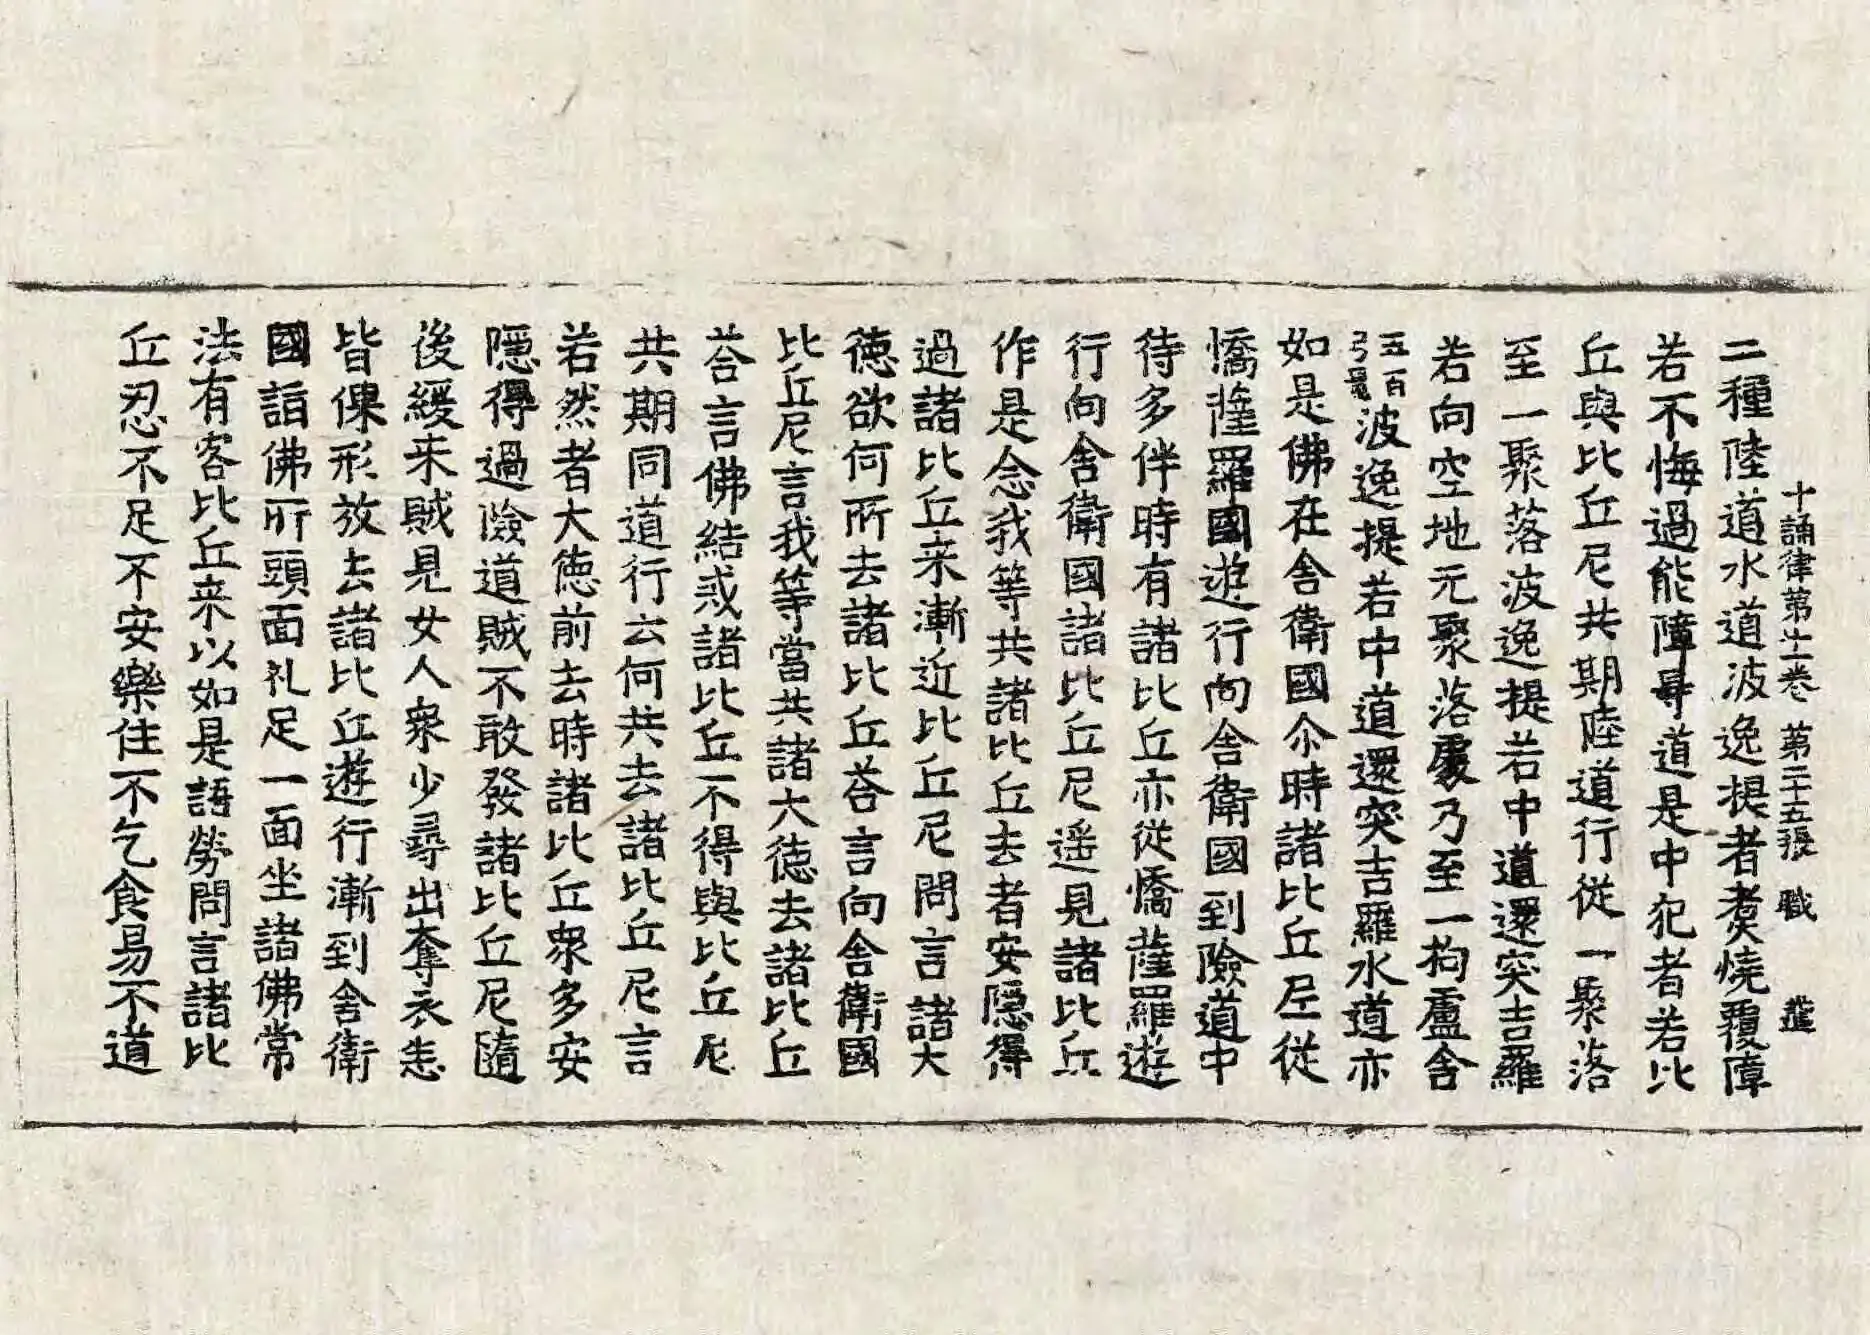 十誦律第十一卷 第二十五張 職
二種陸道水道波逸提者煮燒覆障
若不悔過能障㝵道是中犯者若比
丘與比丘尼共期陸道行從一聚落
至一聚落波逸提若中道還突吉羅
若向空地无聚落處乃至一拘盧舍
五百弓量波逸提若中道還突吉羅水道亦
如是佛在舍衛國尒時諸比丘尼從
憍薩羅國遊行向舍衛國到險道中
待多伴時有諸比丘亦從憍薩羅遊
行向舍衛國諸比丘尼遥見諸比丘
作是念我等共諸比丘去者安隱得
過諸比丘来漸近比丘尼問言諸大
徳欲何所去諸比丘荅言向舍衛國
比丘尼言我等當共諸大徳去諸比丘
荅言佛結戒諸比丘不得與比丘尼
共期同道行云何共去諸比丘尼言
若然者大徳前去時諸比丘衆多安
隱得過險道賊不敢發諸比丘尼隨
後緩来賊見女人衆少尋出奪衣悉
皆倮形放去諸比丘遊行漸到舍衛
國詣佛所頭面礼足一面坐諸佛常
法有客比丘来以如是語勞問言諸比
丘忍不足不安樂住不乞食易不道